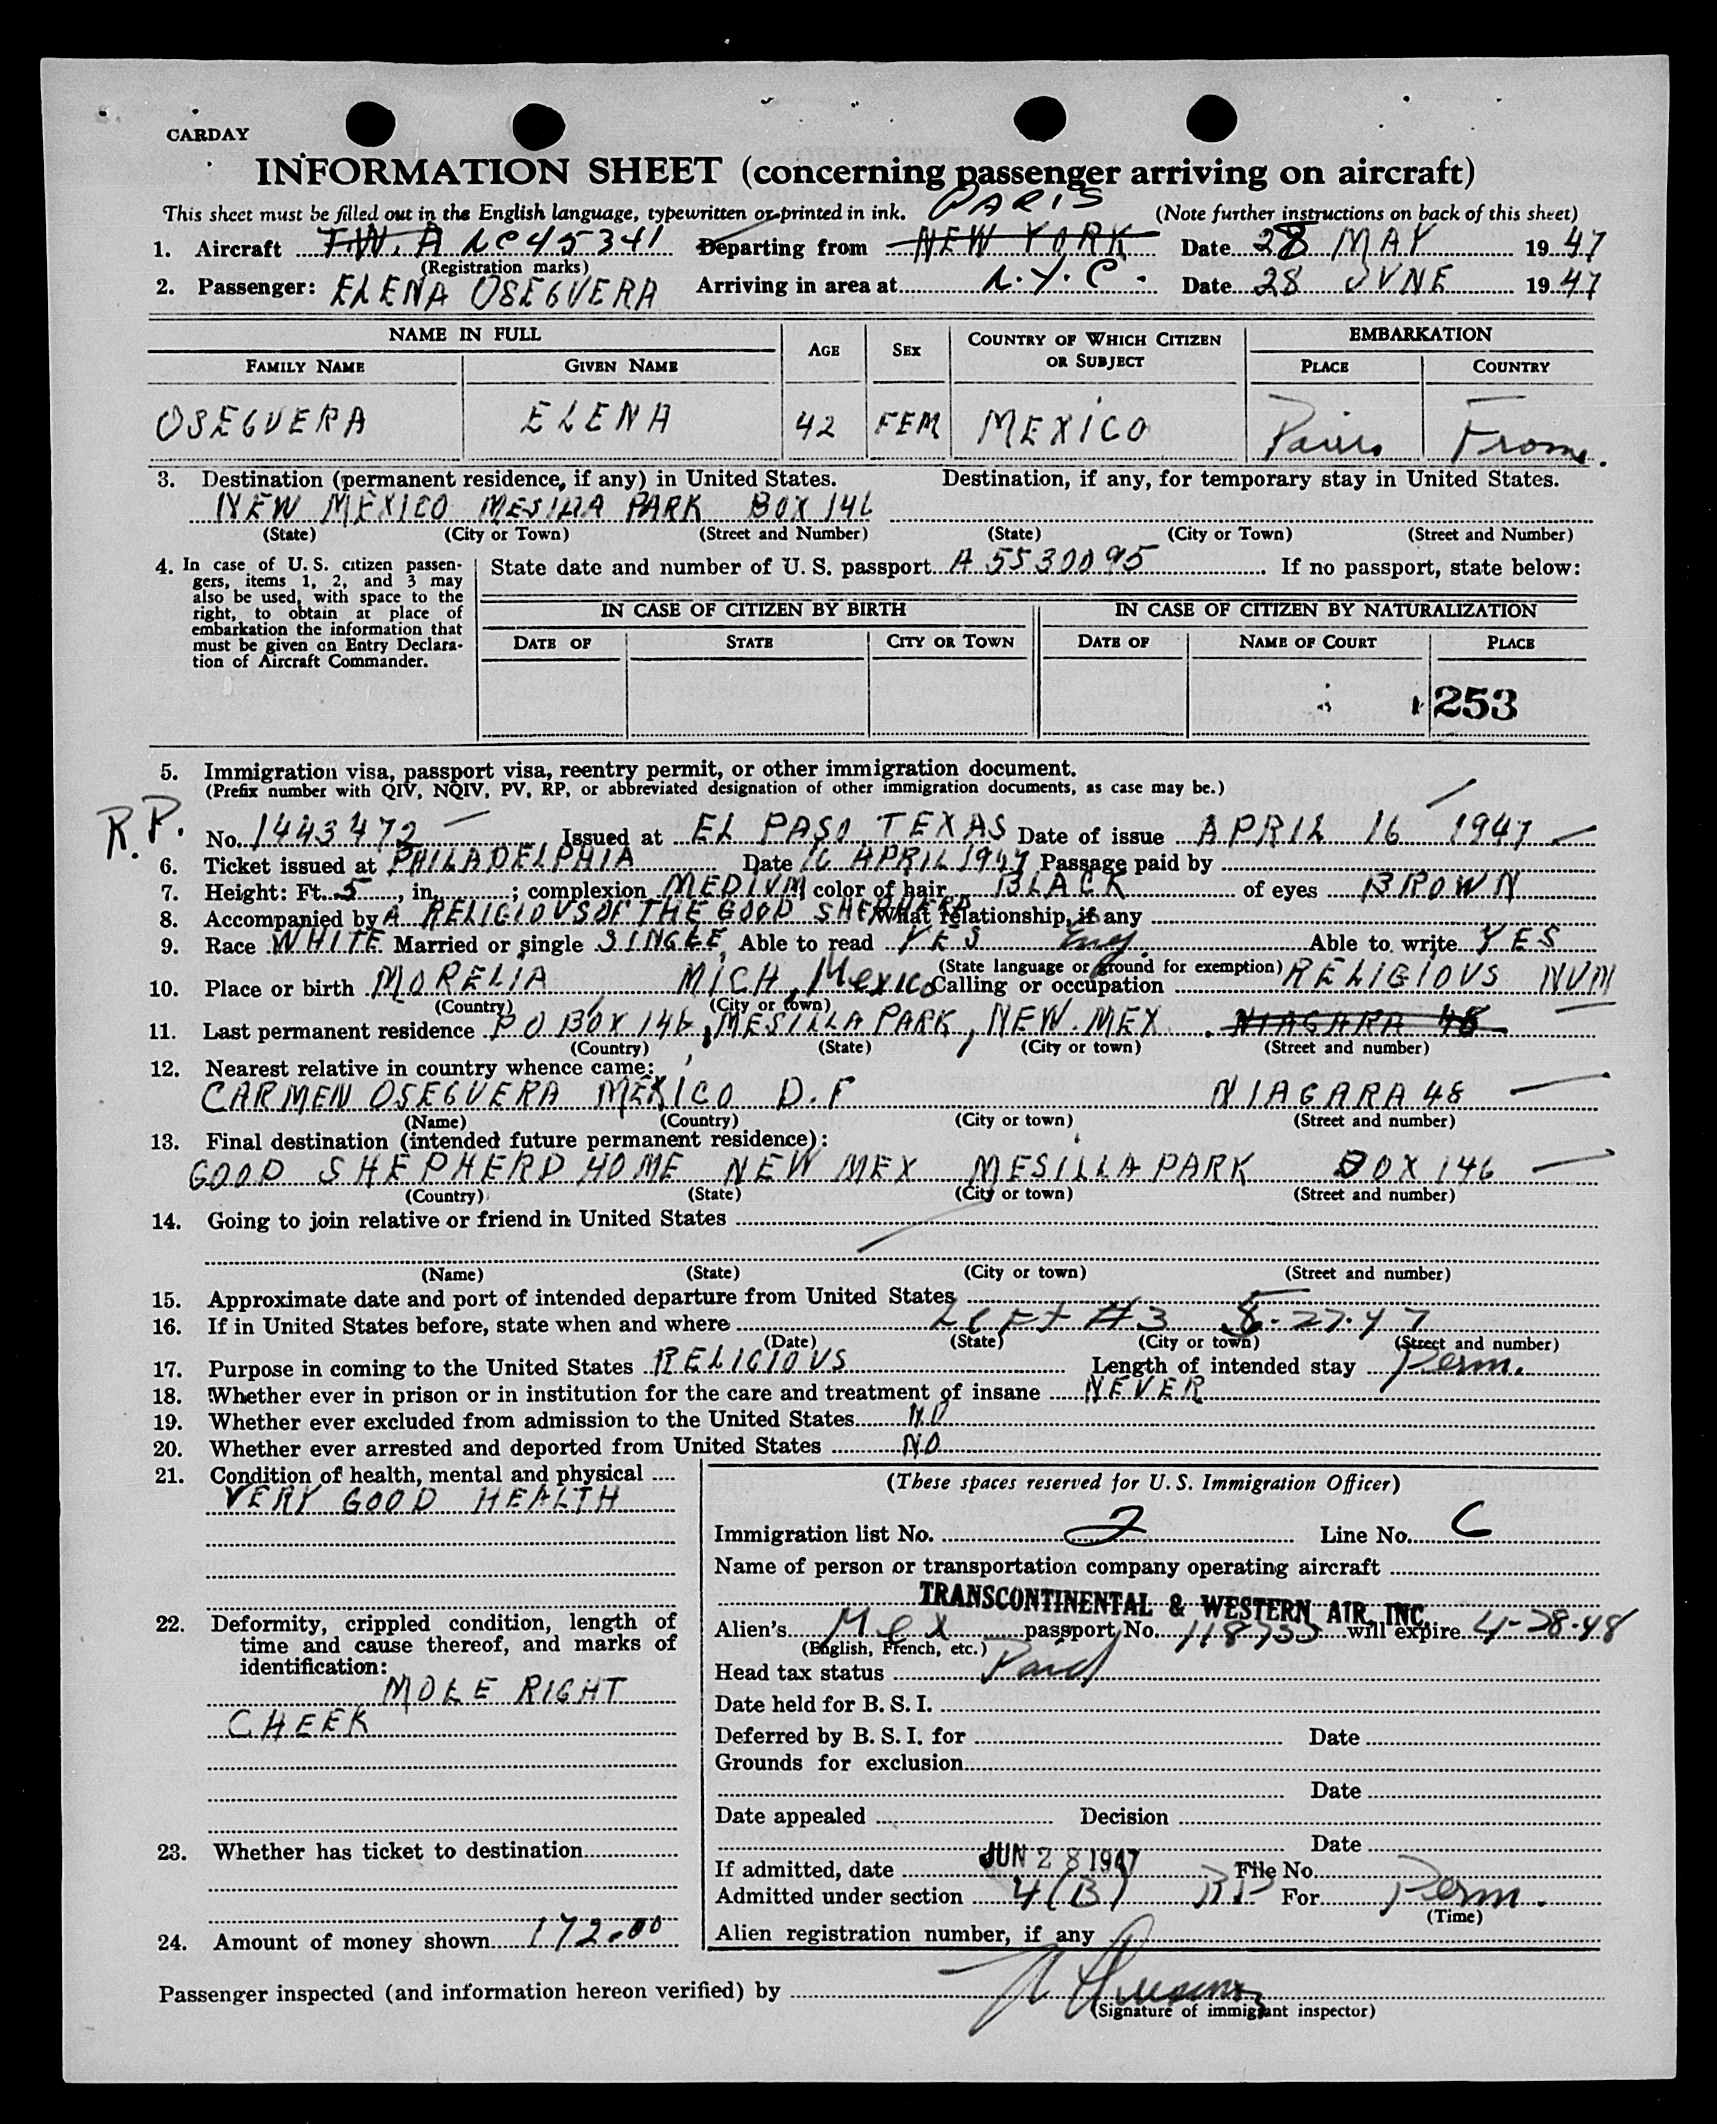 CARDAY
INFORMATION SHEET (concerning passenger arriving on aircraft)
This sheet must be filled out in the English language, typewritten or printed in ink. PARIS (Note further instructions on back of this sheet)
1. Aircraft T.W.A NC45341 Departing from NEW YORK Date 28 MAY 1947
(Registration marks)
2. Passenger: ELENA OSEGVERA Arriving in area at N.Y.C. Date 28 JVNE 1947
NAME IN FULL AGE SEX COUNTRY OF WHICH CITIZEN OR SUBJECT EMBARKATION
FAMILY NAME GIVEN NAME PLACE COUNTRY
OSEGVERA ELENA 42 FEM MEXICO Paris
3. Destination (permanent residence, if any) in United States. Destination, if any, for temporary stay in United States.
NEW MEXICO MESILLA PARK BOX 146
(State) (City or Town) (Street and Number) (State) (City or Town) (Street and Number)
4. In case of U. S. citizen passengers, items 1, 2, and 3 may also be used, with space to the right, to obtain at place of embarkation the information that must be given on Entry Declaration of Aircraft Commander.
State date and number of U. S. passport A 5530095 If no passport, state below:
IN CASE OF CITIZEN BY BIRTH IN CASE OF CITIZEN BY NATURALIZATION
DATE OF STATE CITY OR TOWN DATE OF NAME OF COURT PLACE
253
5. Immigration visa, passport visa, reentry permit, or other immigration document.
(Prefix number with QIV, NQIV, PV, RP, or abbreviated designation of other immigration documents, as case may be.)
R.P. No. 1443472 Issued at EL PASO TEXAS Date of issue APRIL 16 1947
6. Ticket issued at PHILADELPHIA Date 16 APRIL 1947 Passage paid by
7. Height: Ft. 5, in. ; complexion MEDIVM color of hair BLACK of eyes BROWN
8. Accompanied by A RELIGIOVS OF THE GOOD SHEPHERD What relationship, if any
9. Race WHITE Married or single SINGLE Able to read YES Eng. Able to write YES
(State language or ground for exemption)
10. Place or birth MORELIA MICH, Mexico Calling or occupation RELIGIOVS NVN
(Country) (City or town)
11. Last permanent residence P O BOX 146, MESILLA PARK, NEW.MEX. NIAGARA 48
(Country) (State) (City or town) (Street and number)
12. Nearest relative in country whence came:
CARMEN OSEGVERA MEXICO D.F NIAGARA 48
(Name) (Country) (City or town) (Street and number)
13. Final destination (intended future permanent residence):
GOOD SHEPHERD HOME NEW MEX MESILLA PARK BOX 146
(Country) (State) (City or town) (Street and number)
14. Going to join relative or friend in United States
(Name) (State) (City or town) (Street and number)
15. Approximate date and port of intended departure from United States
16. If in United States before, state when and where Left #3 5-27-47
(Date) (State) (City or town) (Street and number)
17. Purpose in coming to the United States RELIGIOVS Length of intended stay Perm.
18. Whether ever in prison or in institution for the care and treatment of insane NEVER
19. Whether ever excluded from admission to the United States NO
20. Whether ever arrested and deported from United States NO
21. Condition of health, mental and physical
VERY GOOD HEALTH
22. Deformity, crippled condition, length of time and cause thereof, and marks of identification:
MOLE RIGHT
CHEEK
23. Whether has ticket to destination
24. Amount of money shown 172.00
(These spaces reserved for U. S. Immigration Officer)
Immigration list No. 2 Line No. 6
Name of person or transportation company operating aircraft
TRANSCONTINENTAL & WESTERN AIR, INC.
Alien's Mex passport No. will expire 4-28-48
(English, French, etc.)
Head tax status Paid
Date held for B. S. I.
Deferred by B. S. I. for Date
Grounds for exclusion
Date
Date appealed Decision
Date
If admitted, date JUN 28 1947 File No.
Admitted under section 4(B) RP For Perm.
(Time)
Alien registration number, if any
Passenger inspected (and information hereon verified) by
(Signature of immigrant inspector)